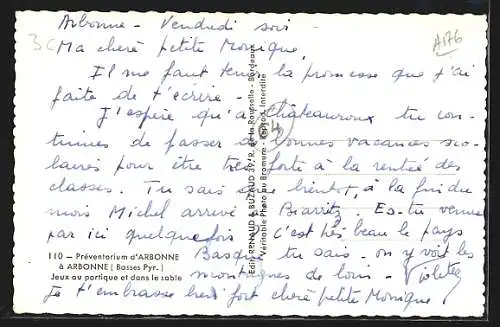 Arbonne - Vendredi soir -
3C
A176
Ma chère petite Monique,
Il me faut tenir la promesse que j'ai
faite de t'écrire
J'espère qu'à Châteauroux tu con-
tinues de passer de bonnes vacances sco-
laires pour être très forte à la rentrée des
classes. Tu sais que bientôt, à la fin du
mois Michel arrive Biarritz. Es-tu venue
par ici quelquefois C'est très beau le pays
Basque tu sais - on y voit les
montagnes de loin. Violette
Je t'embrasse bien fort chère petite Monique
110 — Préventorium d'ARBONNE
à ARBONNE (Basses Pyr.)
Jeux au portique et dans le sable
Edit. RENAUD & BUZAUD 39, R. de la Rousselle - Bordeaux
Véritable Photo au Bromure - Reprod. Interdite